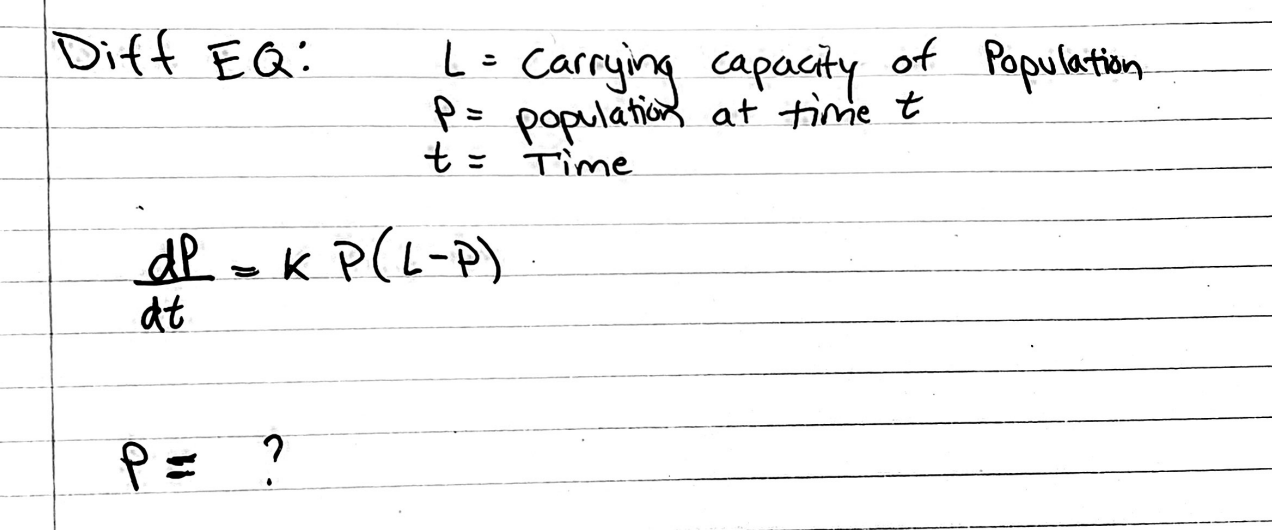 Diff EQ: L = Carrying capacity of Population
P = population at time t
t = Time
dP/dt = K P(L-P)
P = ?